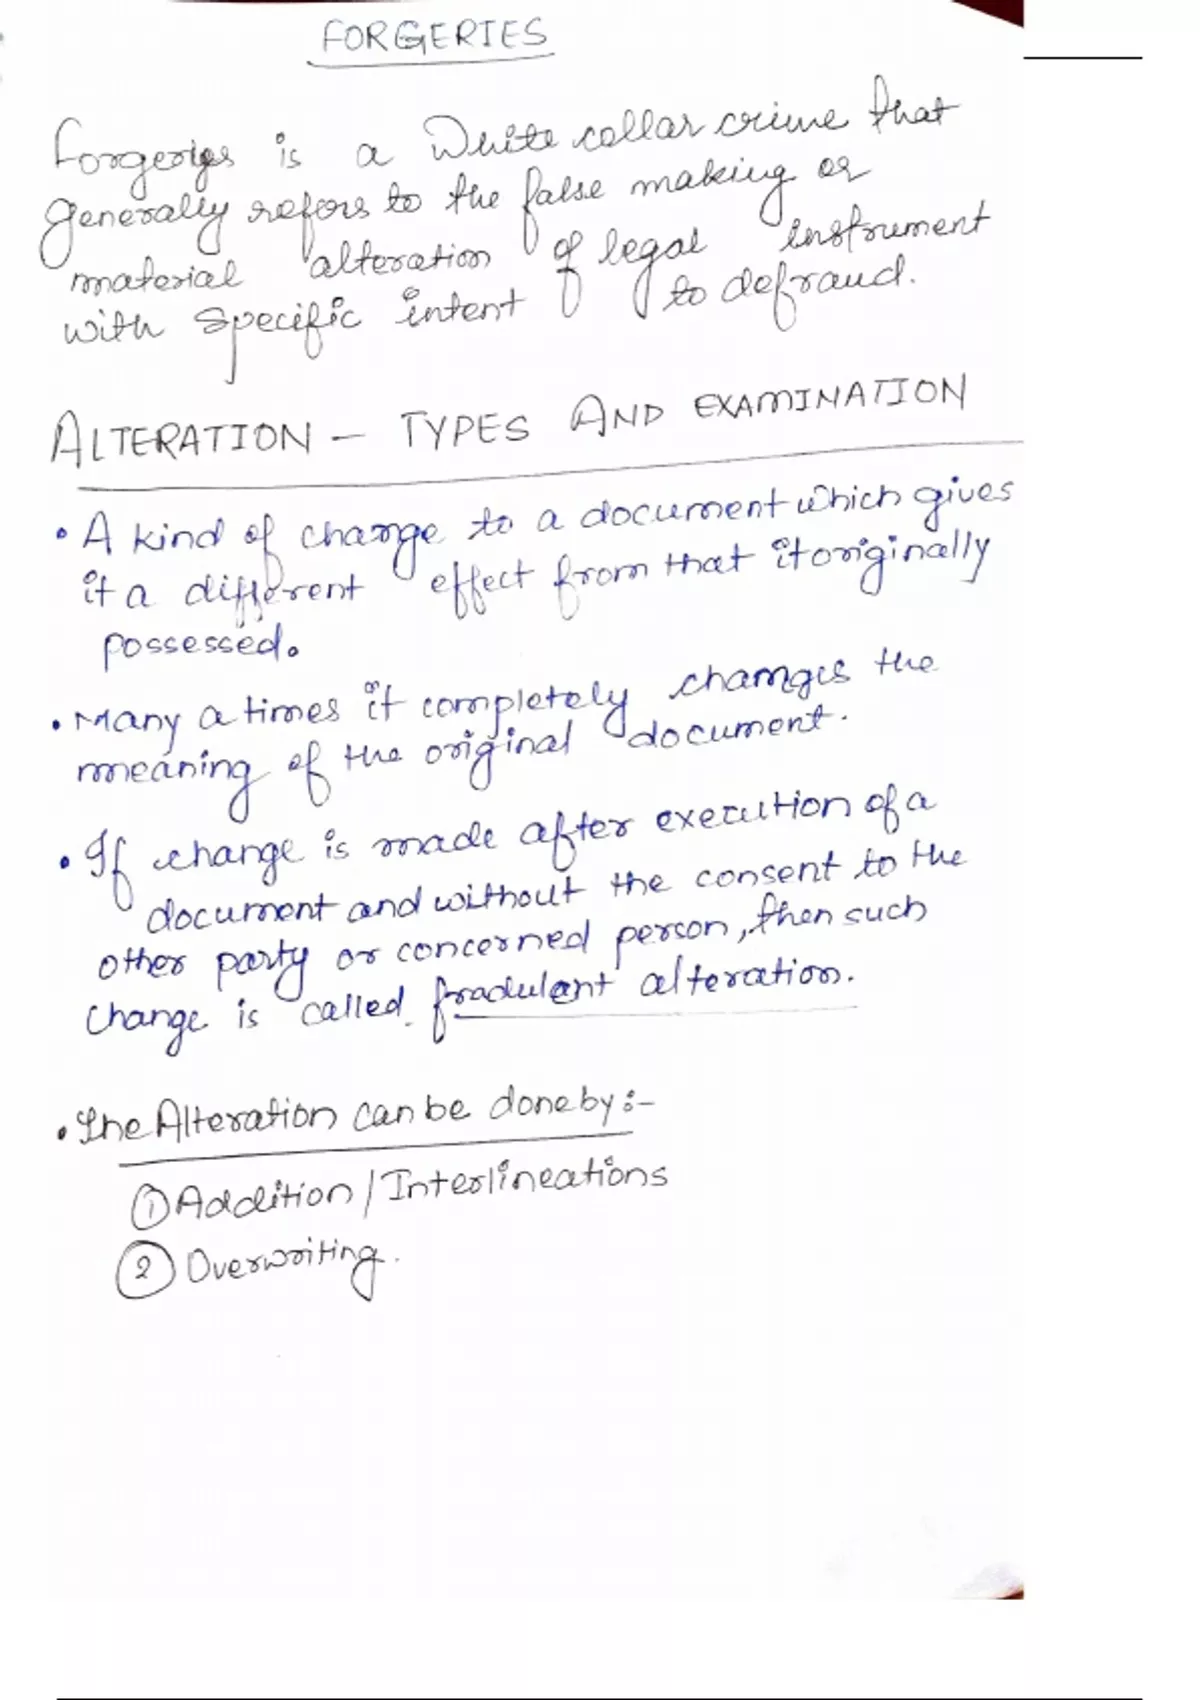 FORGERIES
Forgeries is a White collar crime that
generally refers to the false making or
material alteration of legal instrument
with specific intent to defraud.
ALTERATION - TYPES AND EXAMINATION
• A kind of change to a document which gives
it a different effect from that it originally
possessed.
• Many a times it completely changes the
meaning of the original document.
• If change is made after execution of a
document and without the consent to the
other party or concerned person, then such
change is called fradulent alteration.
• The Alteration can be done by :-
① Addition / Interlineations
② Overwriting.